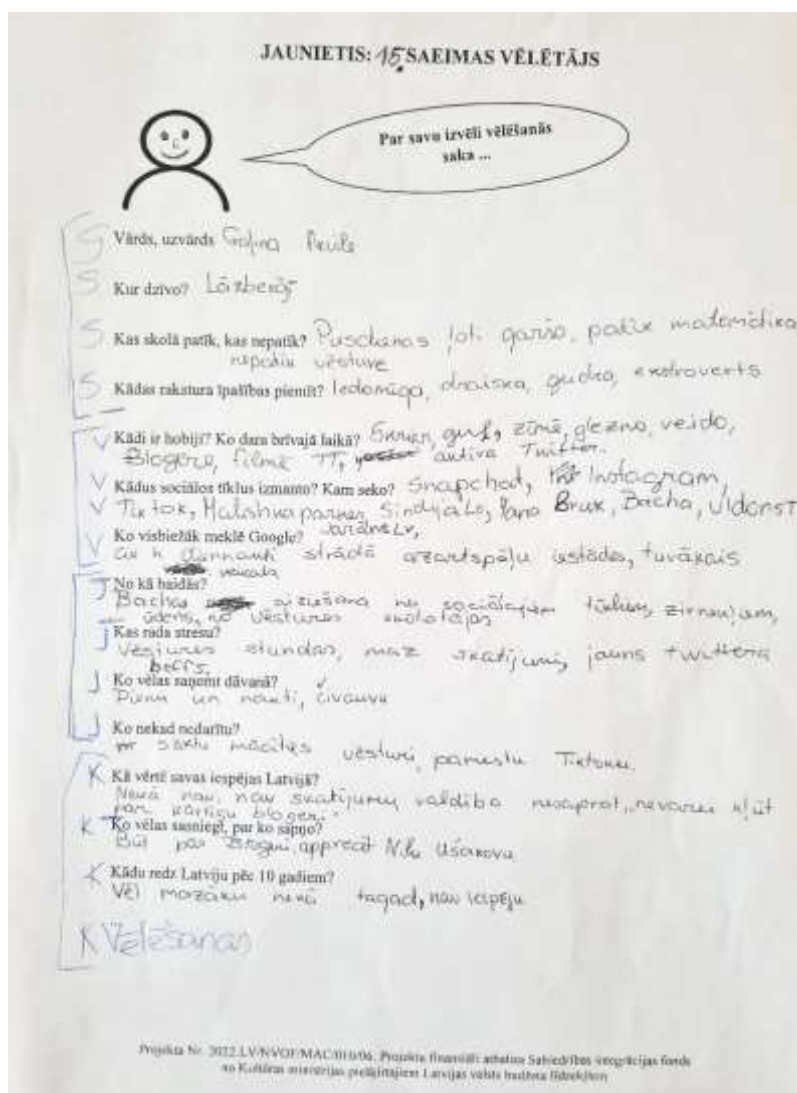 JAUNIETIS: 15. SAEIMAS VĒLĒTĀJS
Par savu izvēli vēlēšanās
saka ...
S Vārds, uzvārds Gaļina
S Kur dzīvo?
S Kas skolā patīk, kas nepatīk? Pusdienas ļoti garšo, patīk matemātika
nepatīk vēsture
S Kādas rakstura īpašības piemīt? Iedomīga, draiska, gudra, ekstroverts
V Kādi ir hobiji? Ko dara brīvajā laikā? zīmē, glezno, veido,
Blogere, filmē TT, aktīva Twitter.
V Kādus sociālos tīklus izmanto? Kam seko? Snapchat, Instagram,
V Tik tok, Sindija Lv, Bruk, Bacha,
V Ko visbiežāk meklē Google? Jarāns Lv,
strādā azartspēļu iestādes, tuvākais
veikals
J No kā baidās?
Bachas aiziešana no sociālajiem tīkliem,
ūdens, no vēstures skolotājas
J Kas rada stresu?
Vēstures stundas, maz skatījumi, jauns twittera
beffs,
J Ko vēlas saņemt dāvanā?
un naudi, čivavu
J Ko nekad nedarītu?
sāktu mācītes vēsturi, pamestu Tiktoku.
K Kā vērtē savas iespējas Latvijā?
Nekā nav, nav skatījumu, valdība nesaprot, nevarēs kļūt
par kārtīgu blogeri.
K Ko vēlas sasniegt, par ko sapņo?
Būt par apprecēt Ušakovu
K Kādu redz Latviju pēc 10 gadiem?
Vēl mazāku nekā tagad, nav iespēju
K Vēlēšanas
Projekta Nr. 2022.LV/NVOF/MAC/010/06. Projektu finansiāli atbalsta Sabiedrības integrācijas fonds
no Kultūras ministrijas piešķirtajiem Latvijas valsts budžeta līdzekļiem